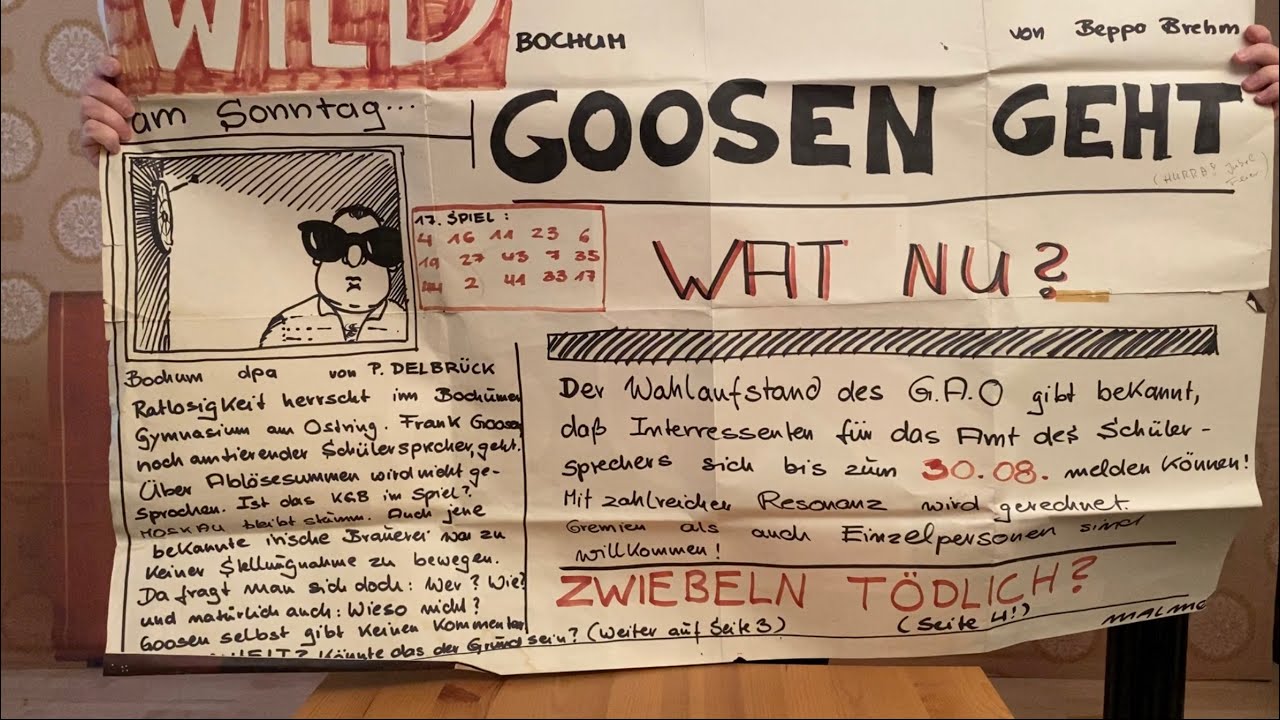 WILD
BOCHUM
von Beppo Brehm
am Sonntag...
GOOSEN GEHT
(HURRA! Jubel
Feier)
17. SPIEL:
4 16 11 23 6
19 27 43 7 35
44 2 41 33 17
WAT NU?
Bochum dpa von P. DELBRÜCK
Ratlosigkeit herrscht im Bochumer
Gymnasium am Ostring. Frank Goosen
noch amtierender Schülersprecher, geht.
Über Ablösesummen wird nicht ge-
sprochen. Ist das KGB im Spiel?
MOSKAU bleibt stumm. Auch jene
bekannte irische Brauerei war zu
keiner Stellungnahme zu bewegen.
Da fragt man sich doch: Wer? Wie?
und natürlich auch: Wieso nicht?
Goosen selbst gibt keinen Kommentar
HEIT? Könnte das der Grund sein? (Weiter auf Seite 3)
Der Wahlaufstand des G.A.O gibt bekannt,
daß Interressenten für das Amt des Schüler-
sprechers sich bis zum 30.08. melden können!
Mit zahlreicher Resonanz wird gerechnet.
Gremien als auch Einzelpersonen sind
willkommen!
ZWIEBELN TÖDLICH?
(Seite 4!)
MALME